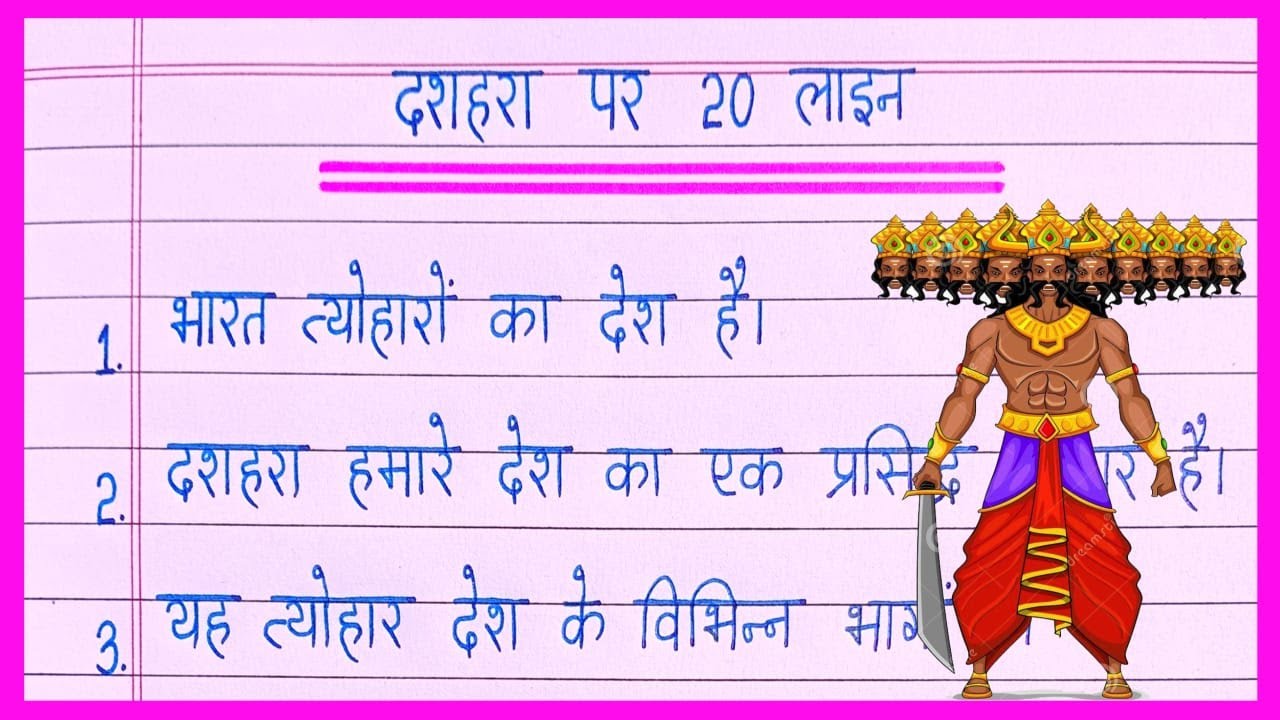 दशहरा पर 20 लाइन
1. भारत त्योहारों का देश है।
2. दशहरा हमारे देश का एक प्रसिद्ध है।
3. यह त्योहार देश के विभिन्न